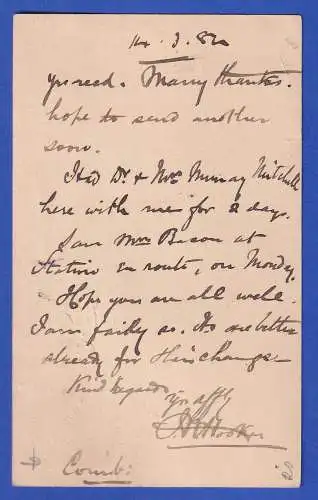 14. 3. 82
yrs recd. Many thanks.
hope to send another
soon.
Had Dr. & Mrs Murray Mitchell
here with me for 2 days.
Saw Mrs Bacon at
Station en route, on Monday.
Hope you are all well.
I am fairly so. No. are better
already for their change
Kind regards
yrs affly
Hooker
Coimb:
20